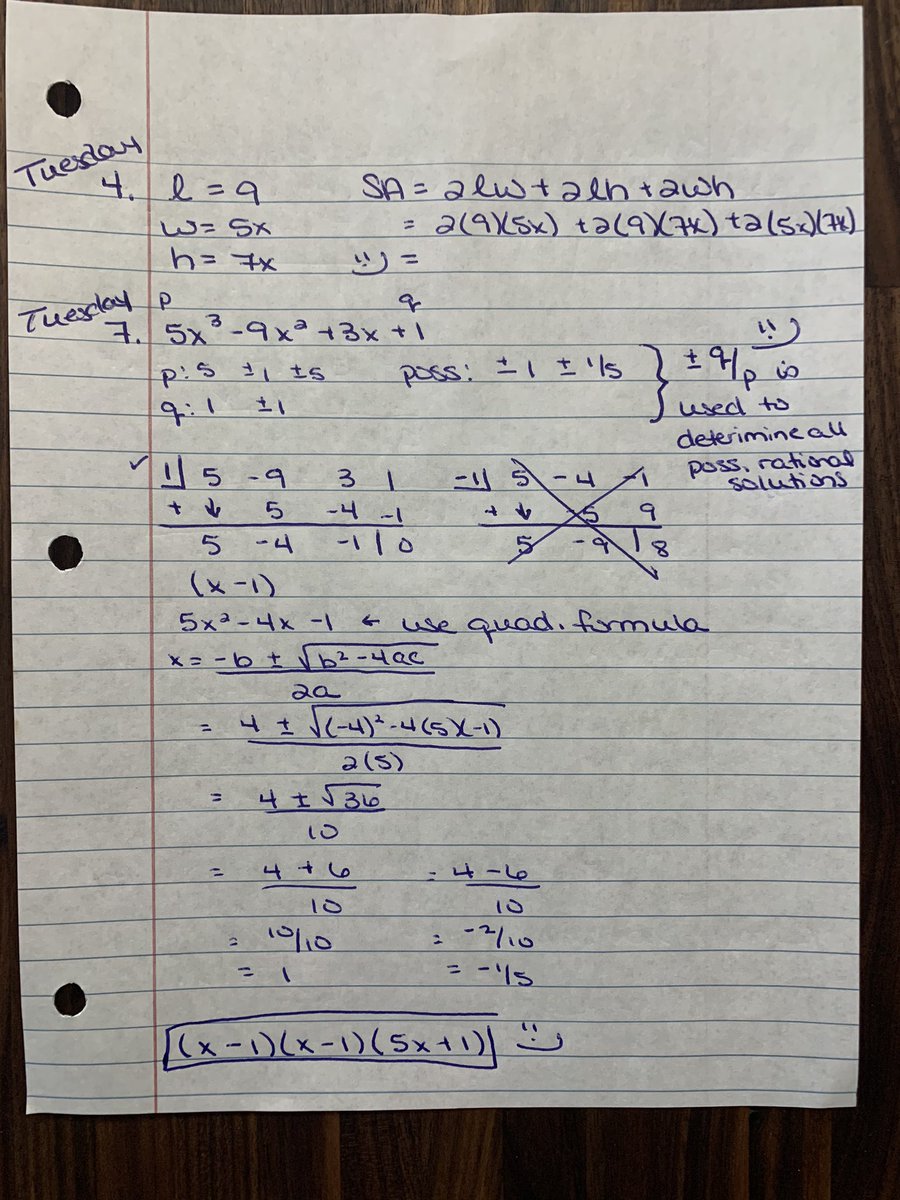 Tuesday
4. l = 9 SA = 2lw + 2lh + 2wh
w = 5x = 2(9)(5x) + 2(9)(7x) + 2(5x)(7x)
h = 7x =
Tuesday p q
7. 5x³ - 9x² + 3x + 1
p: 5 ±1 ±5 poss: ±1 ± 1/5 } ± q/p is
q: 1 ±1 used to
deterimine all
poss. rational
solutions
✓ 1| 5 -9 3 1 -1| 5 -4 -1
+ ↓ 5 -4 -1 + ↓ -5 9
5 -4 -1 | 0 5 -9 | 8
(x - 1)
5x² - 4x - 1 ← use quad. formula
x = -b ± √b² - 4ac
2a
= 4 ± √(-4)² - 4(5)(-1)
2(5)
= 4 ± √36
10
= 4 + 6 = 4 - 6
10 10
= 10/10 = -2/10
= 1 = -1/5
(x - 1)(x - 1)(5x + 1)